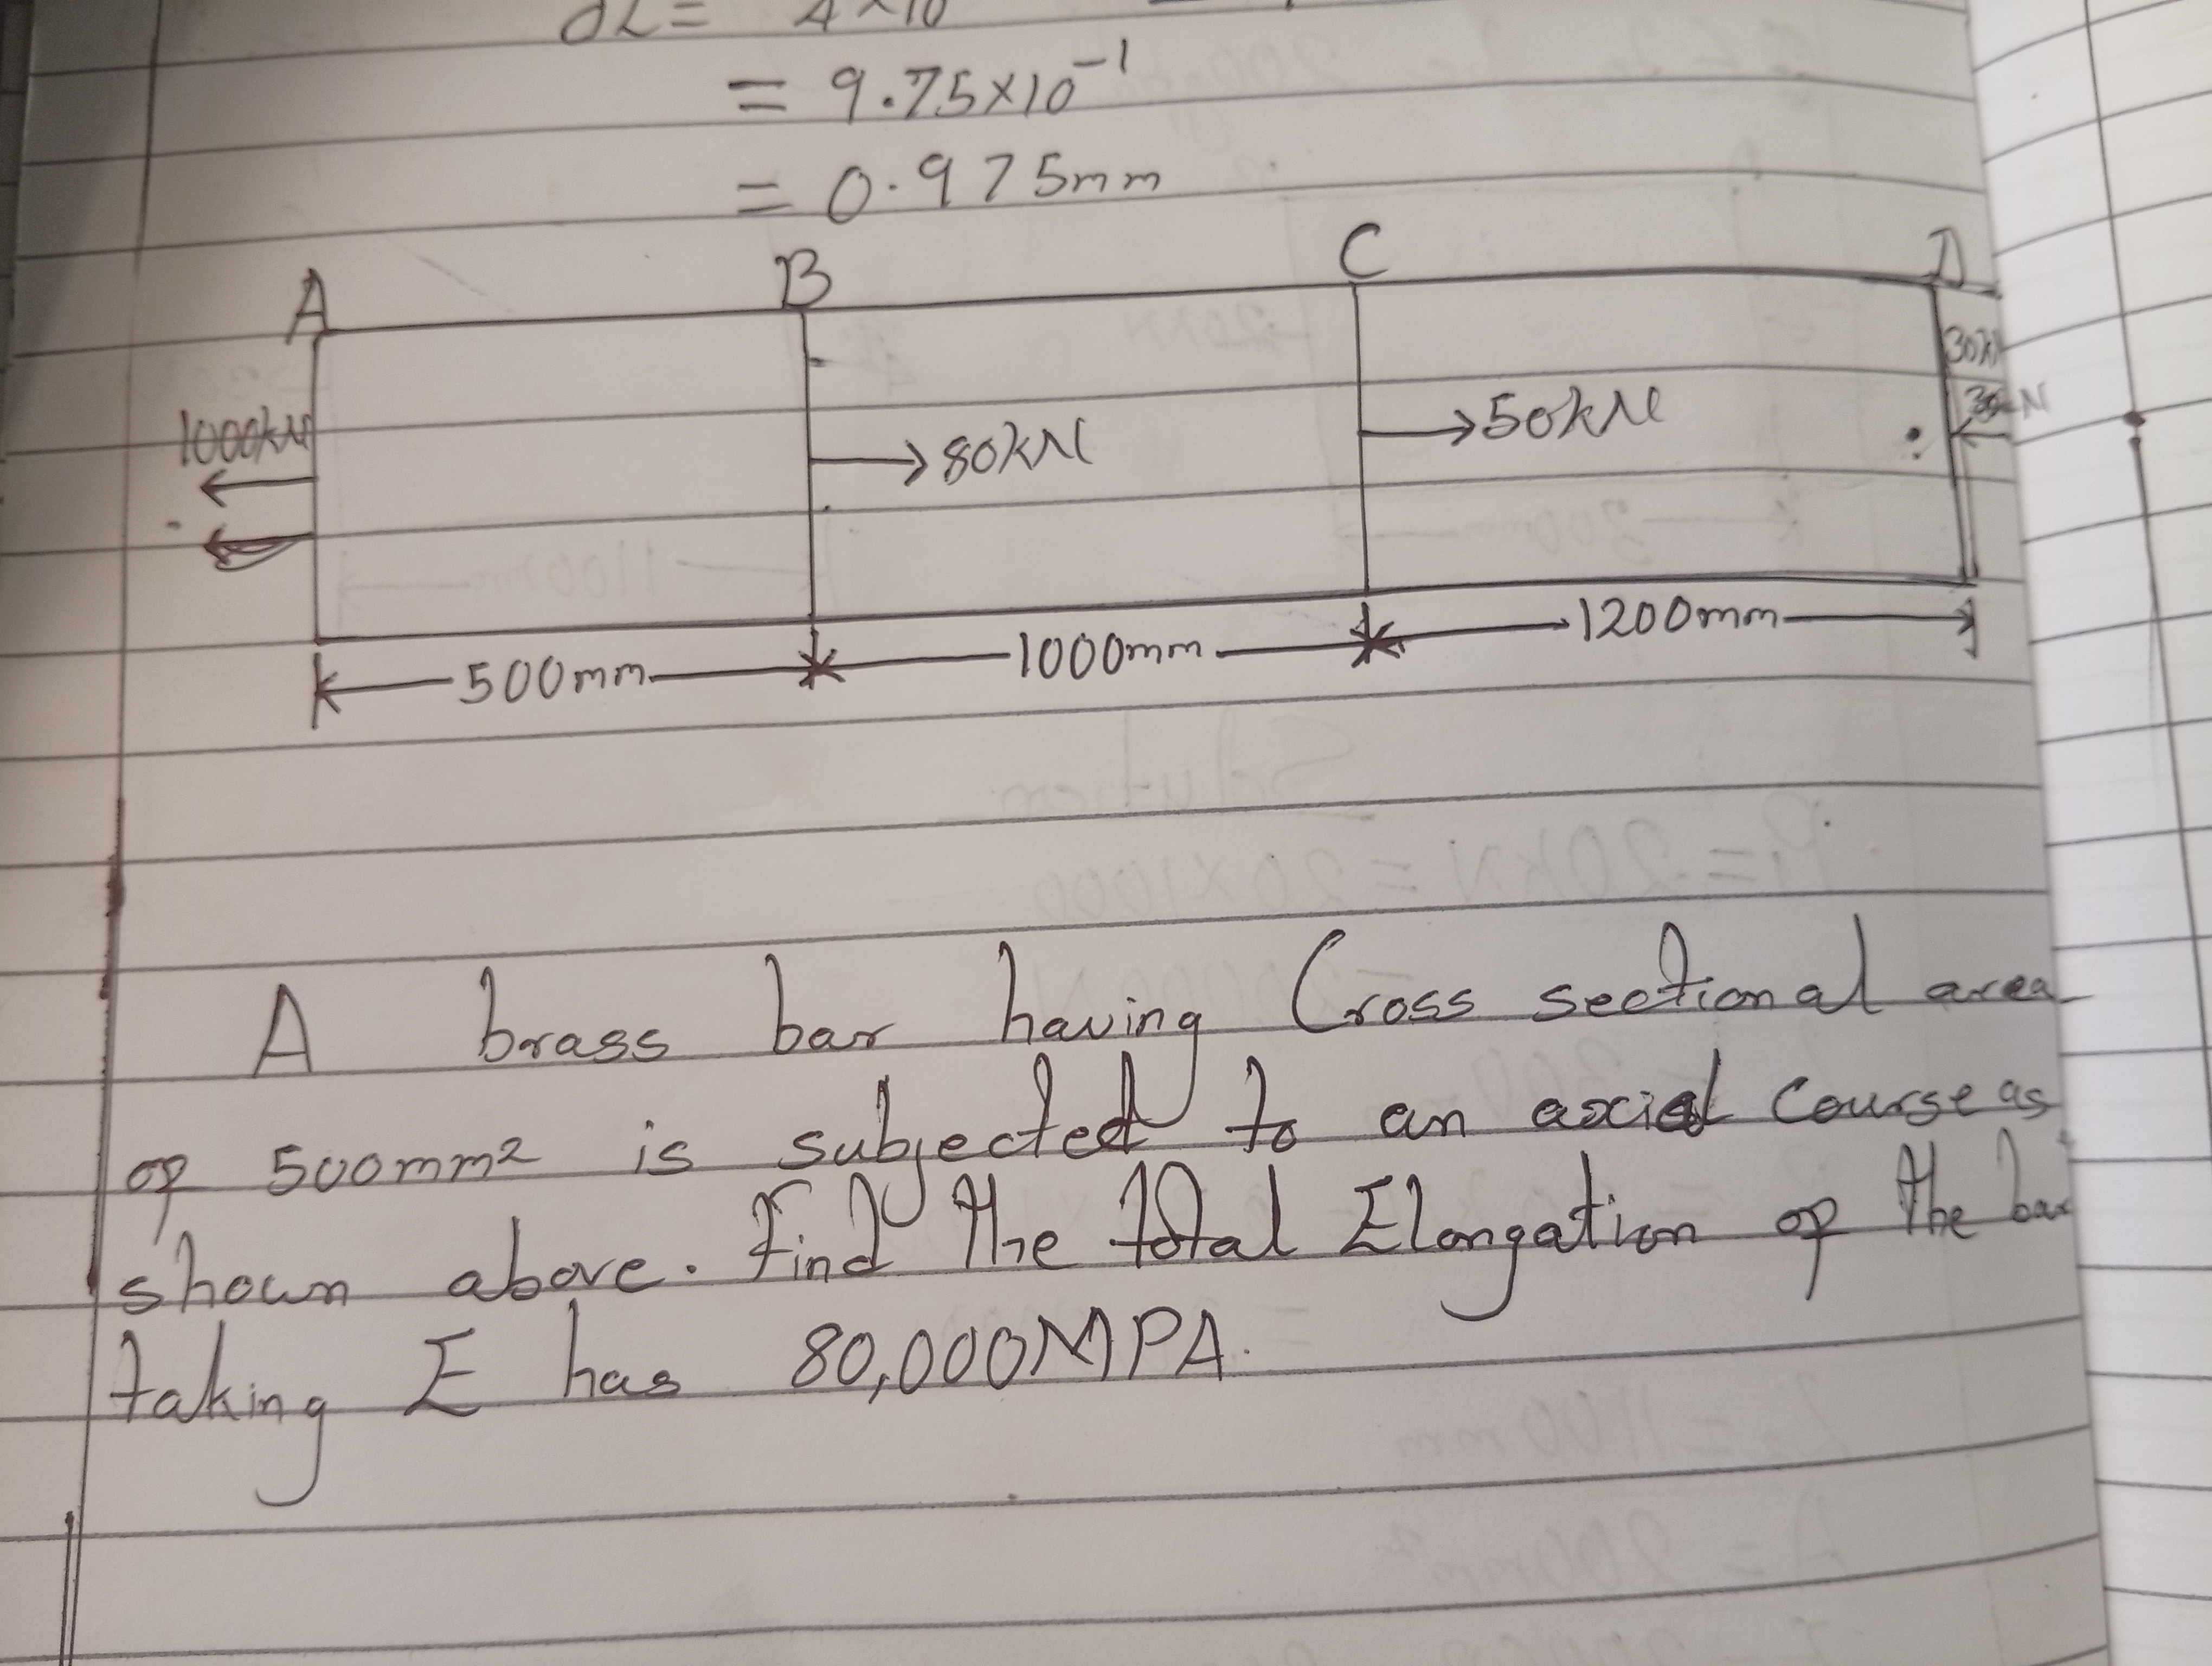 = 9.75×10⁻¹
= 0.975mm
A B C D
30kN
1000kN
80kN
50kN
500mm
1000mm
1200mm
A brass bar having Cross sectional area
of 500mm² is subjected to an axial Course as
shown above. Find the total Elongation of the bar
taking E has 80,000MPA.